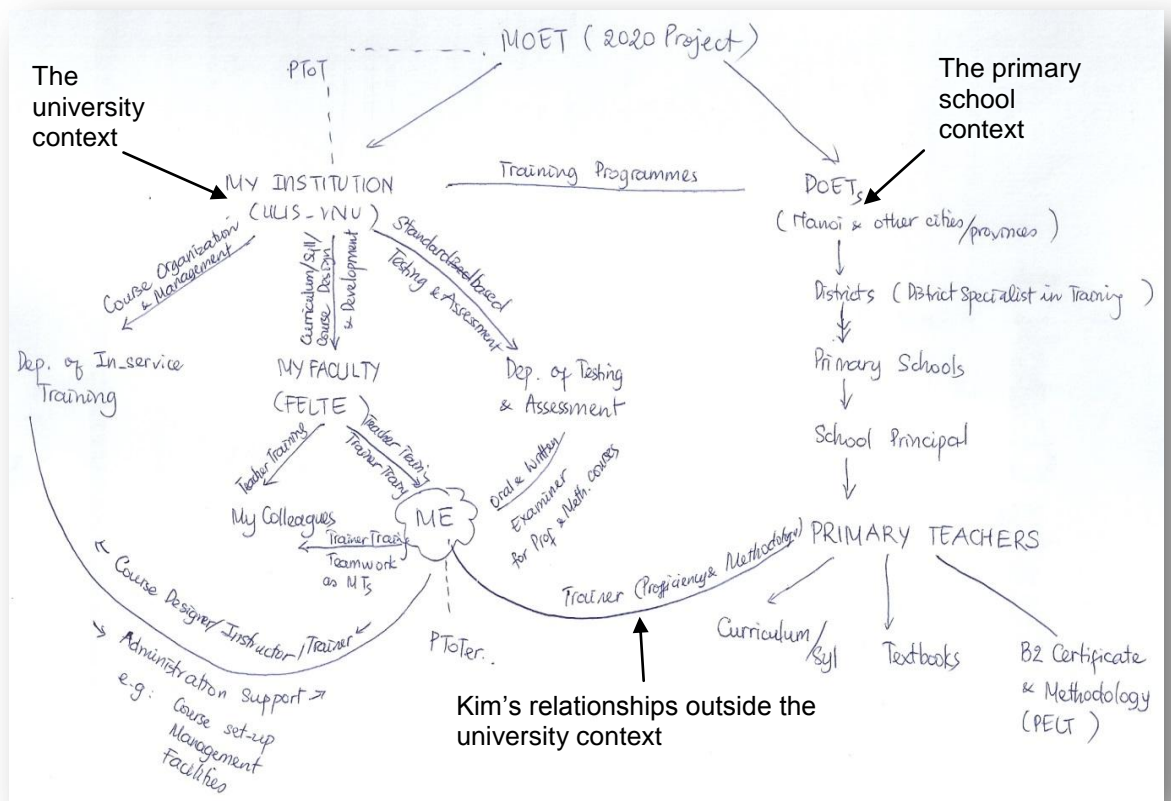 MOET ( 2020 Project )
PToT
The
university
context
The primary
school
context
MY INSTITUTION
(ULIS-VNU)
Training Programmes
DOETs
(Hanoi & other cities/provinces)
Course Organization
& Management
Curriculum/Syll/
Course Design
& Development
Standardized based
Testing & Assessment
Districts (District Specialist in Training )
Dep. of In-service
Training
MY FACULTY
(FELTE)
Dep. of Testing
& Assessment
Primary Schools
School Principal
Teacher Training
Teacher Training
Trainer Training
Oral & Written
Examiner
for Prof & Meth. courses
My Colleagues
ME
Trainer Training
Teamwork
as MTs
PRIMARY TEACHERS
Trainer (Proficiency & Methodology)
Course Designer/Instructor/Trainer
Administration Support
e.g: Course set-up
Management
Facilities
PToTer..
Curriculum/
Syl
Textbooks
B2 Certificate
& Methodology
(PELT )
Kim's relationships outside the
university context